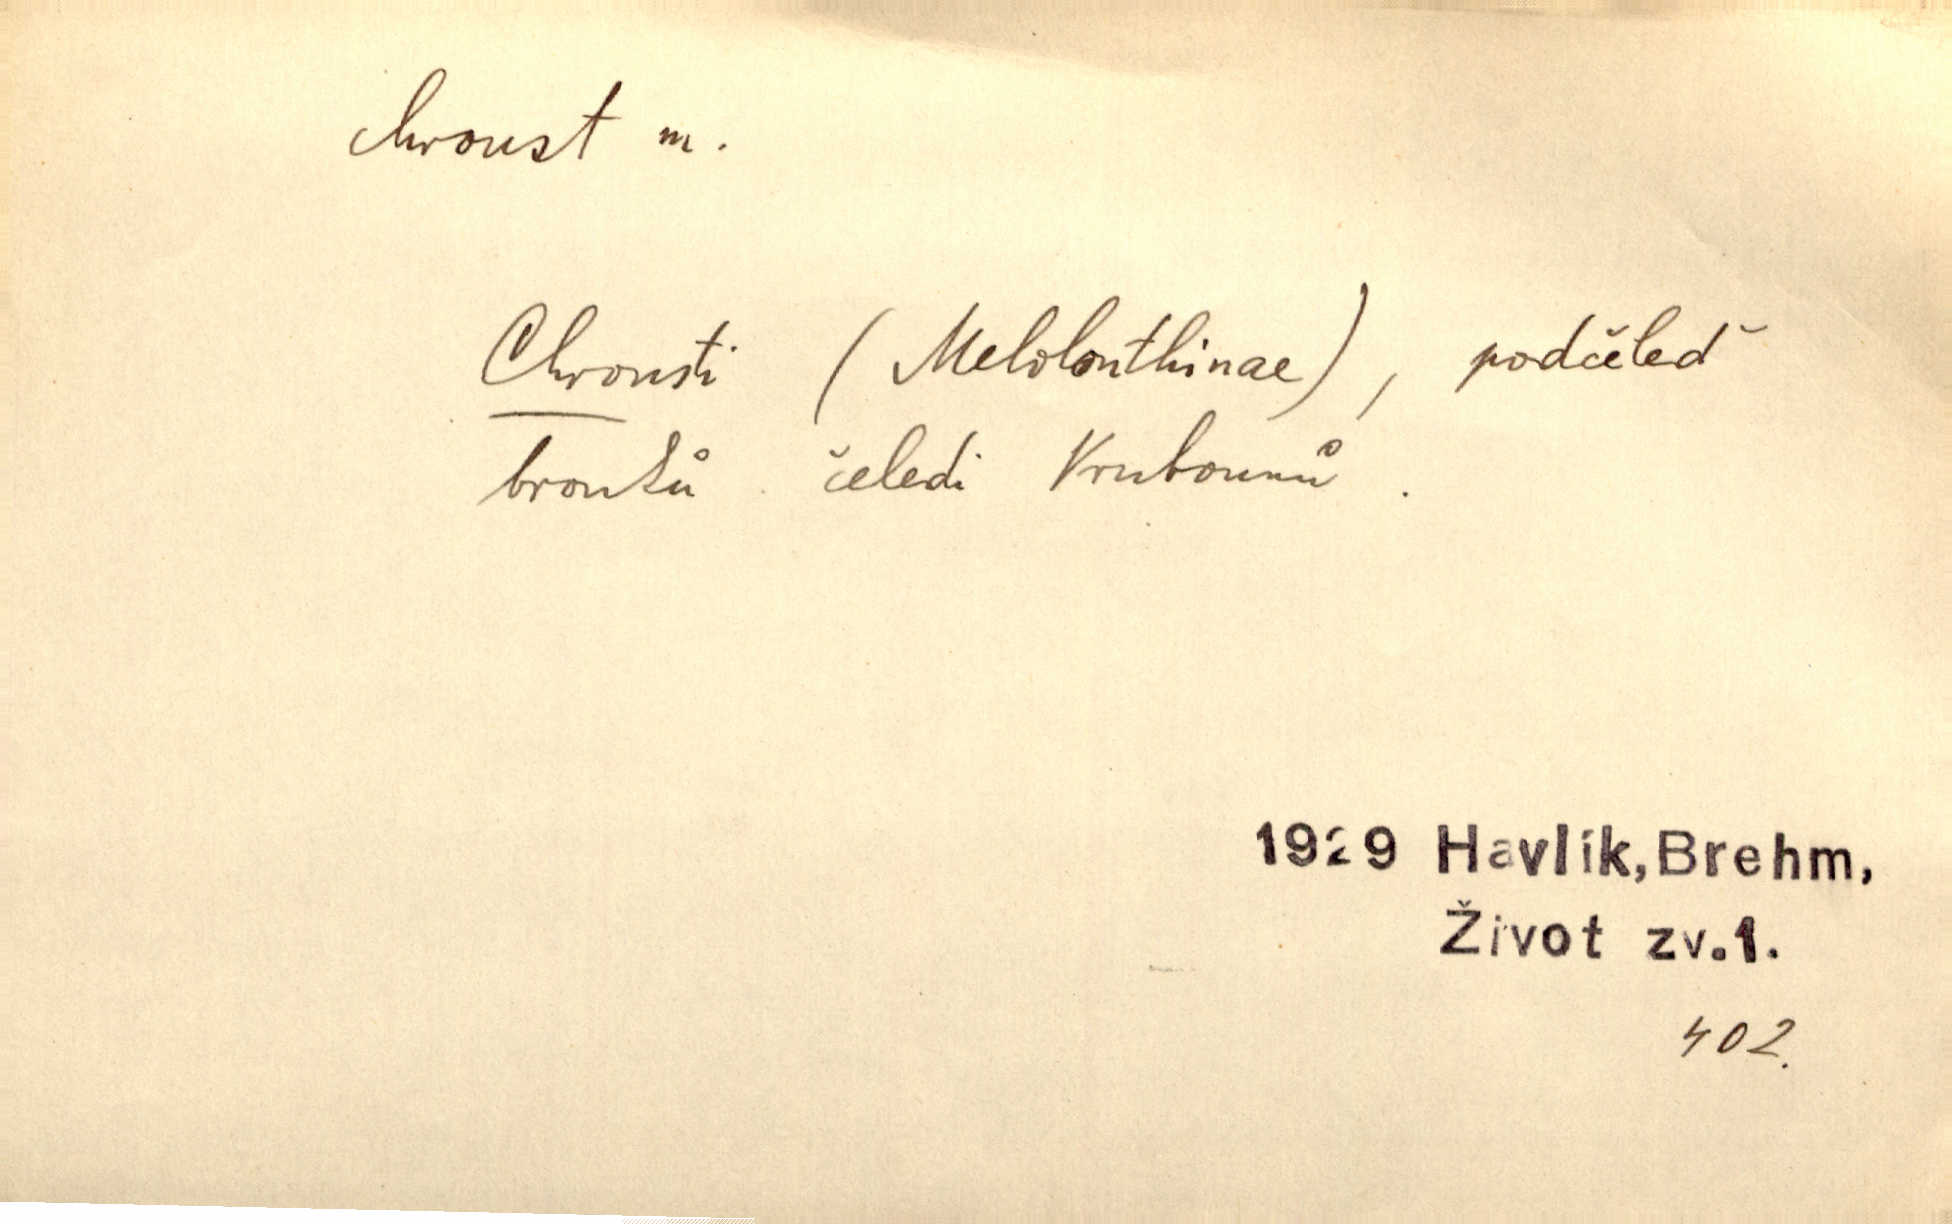 chroust m.
Chrousti (Melolonthinae), podčeleď
brouků čeledi Vrubounů.
1929 Havlík, Brehm,
Život zv.1.
402.